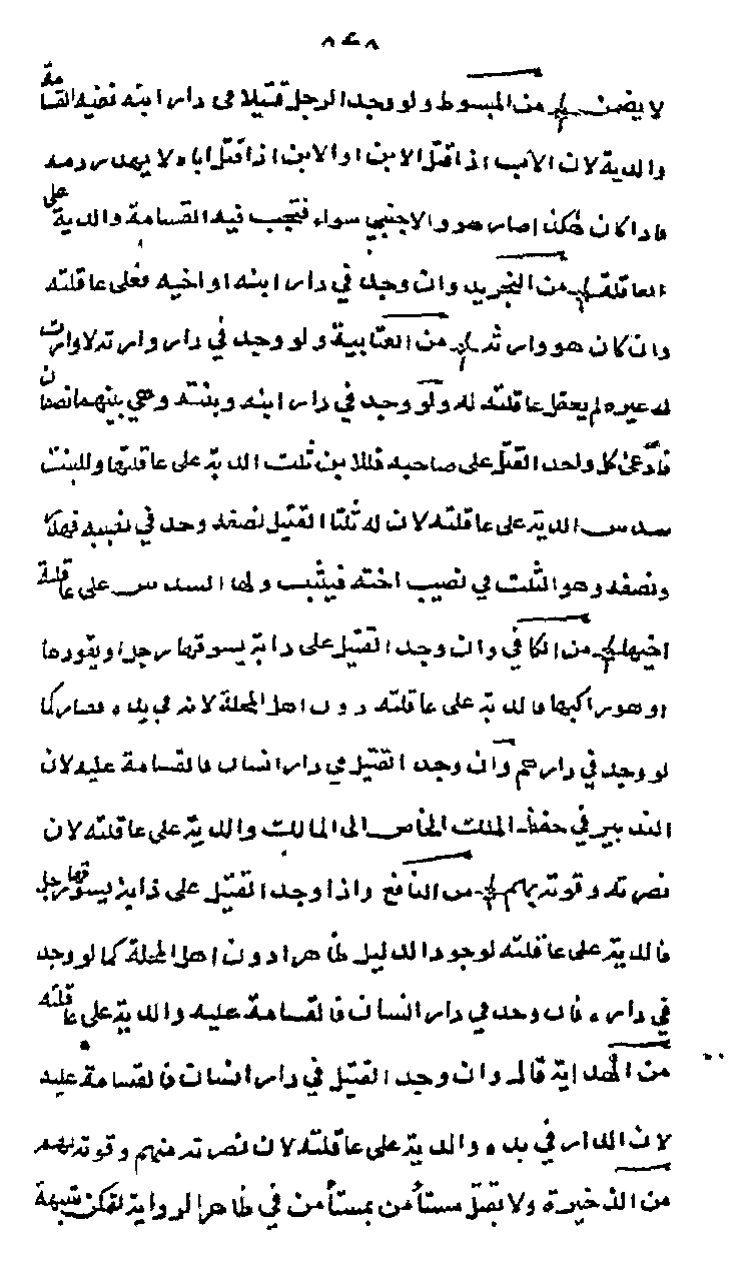 ٨٤٨
لا يضمن من المبسوط ولو وجد الرجل قتيلا في دار ابنه ففيه القسامة
والدية لان الاب اذا قتل الابن او الابن اذا قتل اباه لا يهدر دمه
فاذا كان هكذا صار هو والاجنبي سواء فتجب فيه القسامة والدية على
العاقلة من التجريد وان وجد في دار ابنه او اخيه فعلى عاقلته
وان كان هو وارثه من العتابية ولو وجد في دار وارثه لا وارث
له غيره لم يعقل عاقلته له ولو وجد في دار ابنه وبنته وهي بينهما نصفان
فادعى كل واحد القتل على صاحبه فللابن ثلث الدية على عاقلتها وللبنت
سدس الدية على عاقلته لان له ثلثا القتيل نصفه وجد في نصيبه فهدر
ونصفه وهو الثلث في نصيب اخته فيثبت ولها السدس على عاقلة
اخيها من الكافي وان وجد القتيل على دابة يسوقها رجل او يقودها
او هو راكبها فالدية على عاقلته دون اهل المحلة لانه في يده فصار كما
لو وجد في دارهم وان وجد القتيل في دار انسان فالقسامة عليه لان
التدبير في حفظ الملك الخاص الى المالك والدية على عاقلته لان
نصرته وقوته بهم من النافع واذا وجد القتيل على دابة يسوقها رجل
فالدية على عاقلته لوجود الدليل ظاهرا دون اهل المحلة كما لو وجد
في داره فان وجد في دار انسان فالقسامة عليه والدية على عاقلته
من الهداية قال وان وجد القتيل في دار انسان فالقسامة عليه
لان الدار في يده والدية على عاقلته لان نصرته منهم وقوته بهم
من الذخيرة ولا يقتل مستأمن بمستأمن في ظاهر الرواية لتمكن شبهة